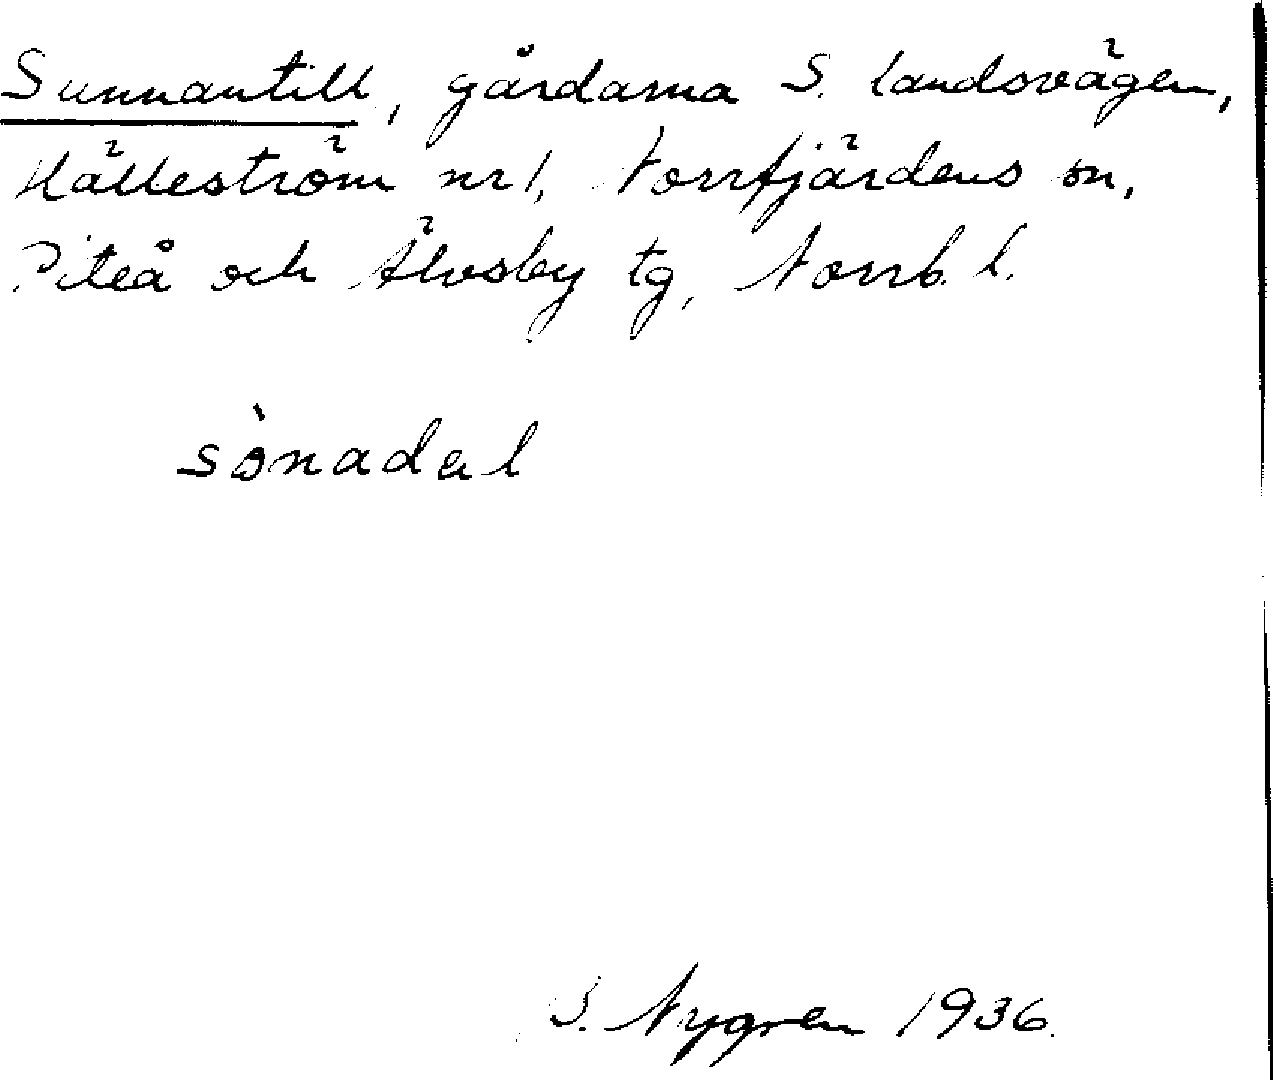 Sunnantill, gårdarna S. landsvägen,
Hälleström nr 1, Norrfjärdens sn,
Piteå och Älvsby tg, Norrb. l.
sònadal
S. Nygren 1936.